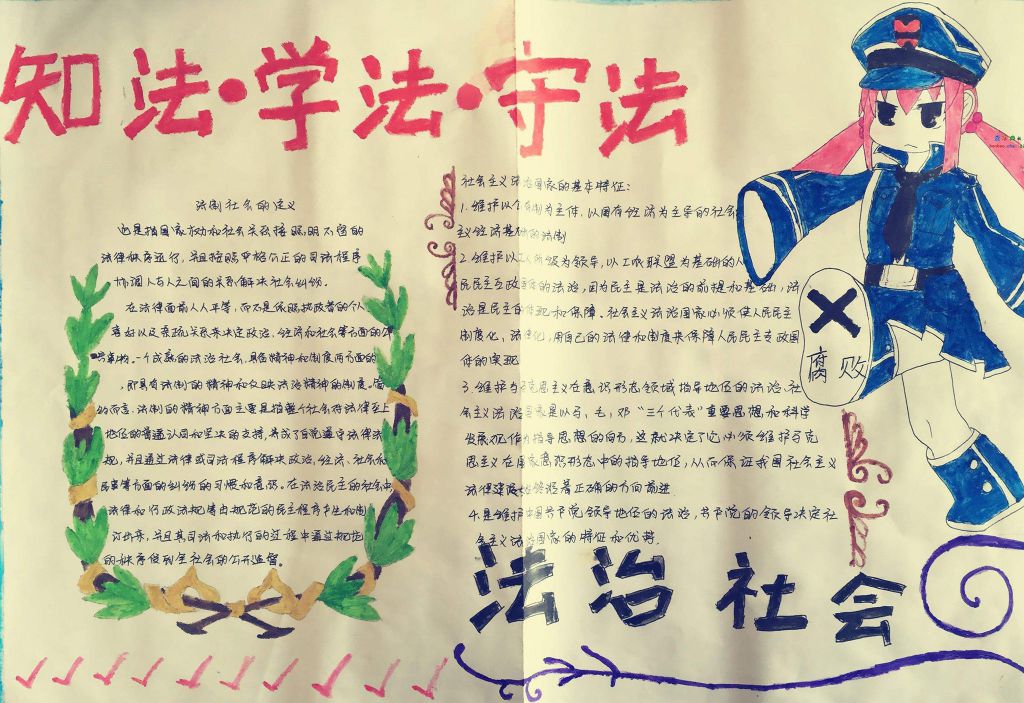 知法·学法·守法
法制社会的定义
也是指国家权力和社会关系按照明不管的
法律秩序运行，并且按照严格公正的司法程序
协调人与人之间的关系解决社会纠纷。
在法律面前人人平等，而不是依照执政者的个人
喜好以及亲疏关系来决定政治、经济和社会等方面的
一个成熟的法治社会，具备精神和制度两方面的
即具有法制的精神和反映法治精神的制度。
而言，法制的精神方面主要是指整个社会对法律至上
地位的普遍认同和坚决的支持，养成了自觉遵守法律法
规，并且通过法律或司法程序解决政治、经济、社会和
民事等方面的纠纷的习惯和意识。在法治民主的社会中
法律和行政法规等由规范的民主程序产生和制
订出来，并且其司法和执行的过程中通过规范
的秩序受到全社会的公开监督。
社会主义法治国家的基本特征：
1.维护以公有制为主体，以国有经济为主导的社会
主义经济基础的法制
2.维护以工人阶级为领导，以工农联盟为基础的人
民民主专政国体的法治，因为民主是法治的前提和基础，法
治是民主的体现和保障。社会主义法治国家必须使人民民主
制度化，法律化，用自己的法律和制度来保障人民民主专政国
体的实现
3.维护马克思主义在意识形态领域指导地位的法治，社
会主义法治国家是以马、毛，邓“三个代表”重要思想和科学
发展观作为指导思想的向方，这就决定了它必须维护马克
思主义在国家意识形态中的指导地位，从而保证我国社会主义
法律建设始终沿着正确的方向前进
4.是维护中国共产党领导地位的法治，共产党的领导决定社
会主义法治国家的特征和优势.
腐败
法治社会